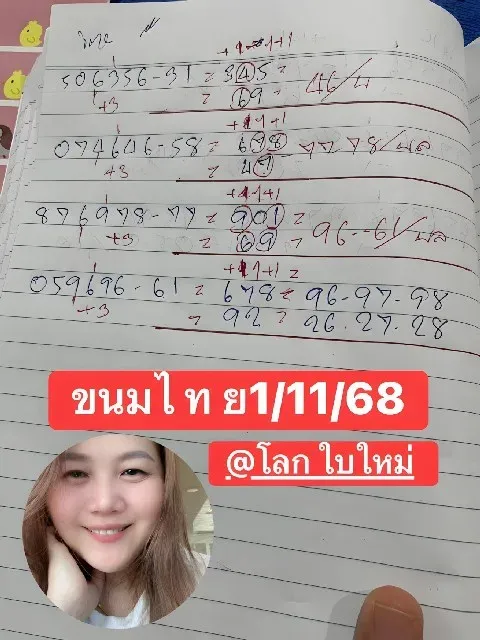 +1+1+1
506356-31 = 345 =
+3 = 69 = 46/บ
+1+1+1
074646-58 = 698 77 78/บล
+3 = 47
+1+1+1
876978-77 = 901 =
+3 = 69 = 96-61/บล
+1+1+1 =
059696-61 = 678 = 96-97-98
+3 = 92 = 26.27.28
ขนมไ ท ย1/11/68
@โลก ใบใหม่